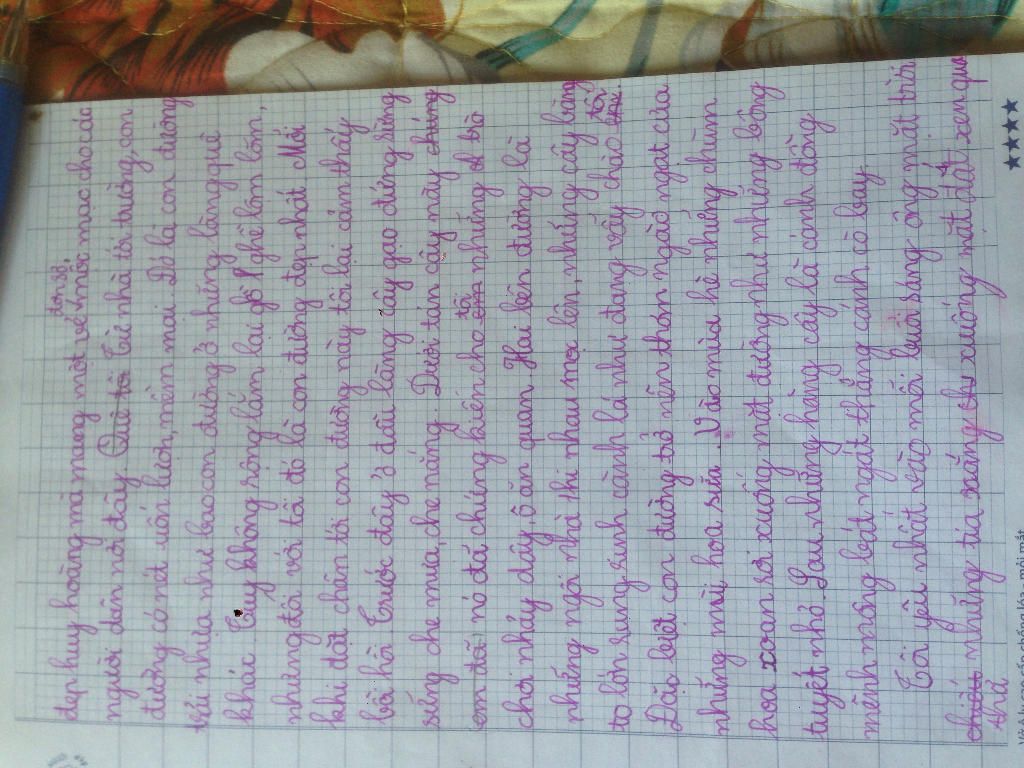 đẹp huy hoàng mà mang một vẻ đơn sơ, mộc mạc cho các
người dân nơi đây. Quê tô Từ nhà tới trường, con
đường có nét uốn lượn, mềm mại. Đó là con đường
trải nhựa như bao con đường ở những làng quê
khác. Tuy không rộng lắm lại gồ ghề lồm lõm,
nhưng đối với tôi đó là con đường đẹp nhất. Mỗi
khi đặt chân tới con đường này tôi lại cảm thấy
bồi hồi. Trước đây ở đầu làng cây gạo đứng sừng
sững che mưa, che nắng. Dưới tán cây này chúng
em đã nó đã chứng kiến cho em tôi những trò
chơi nhảy dây, ô ăn quan. Hai bên đường là
những ngôi nhà thi nhau mọc lên, những cây bàng
to lớn rung rinh cành lá như đang vẫy chào em. tôi.
Đặc biệt con đường trở nên thơm ngào ngạt của
những mùi hoa sữa. Vào mùa hè những chùm
hoa xoan rơi xuống mặt đường như những bông
tuyết nhỏ. Sau những hàng cây là cánh đồng
mênh mông bát ngát thẳng cánh cò bay.
Tôi yêu nhất vào mỗi buổi sáng ông mặt trời
chiếu những tia nắng xuống mặt đất, xen qua
thả
★★★★